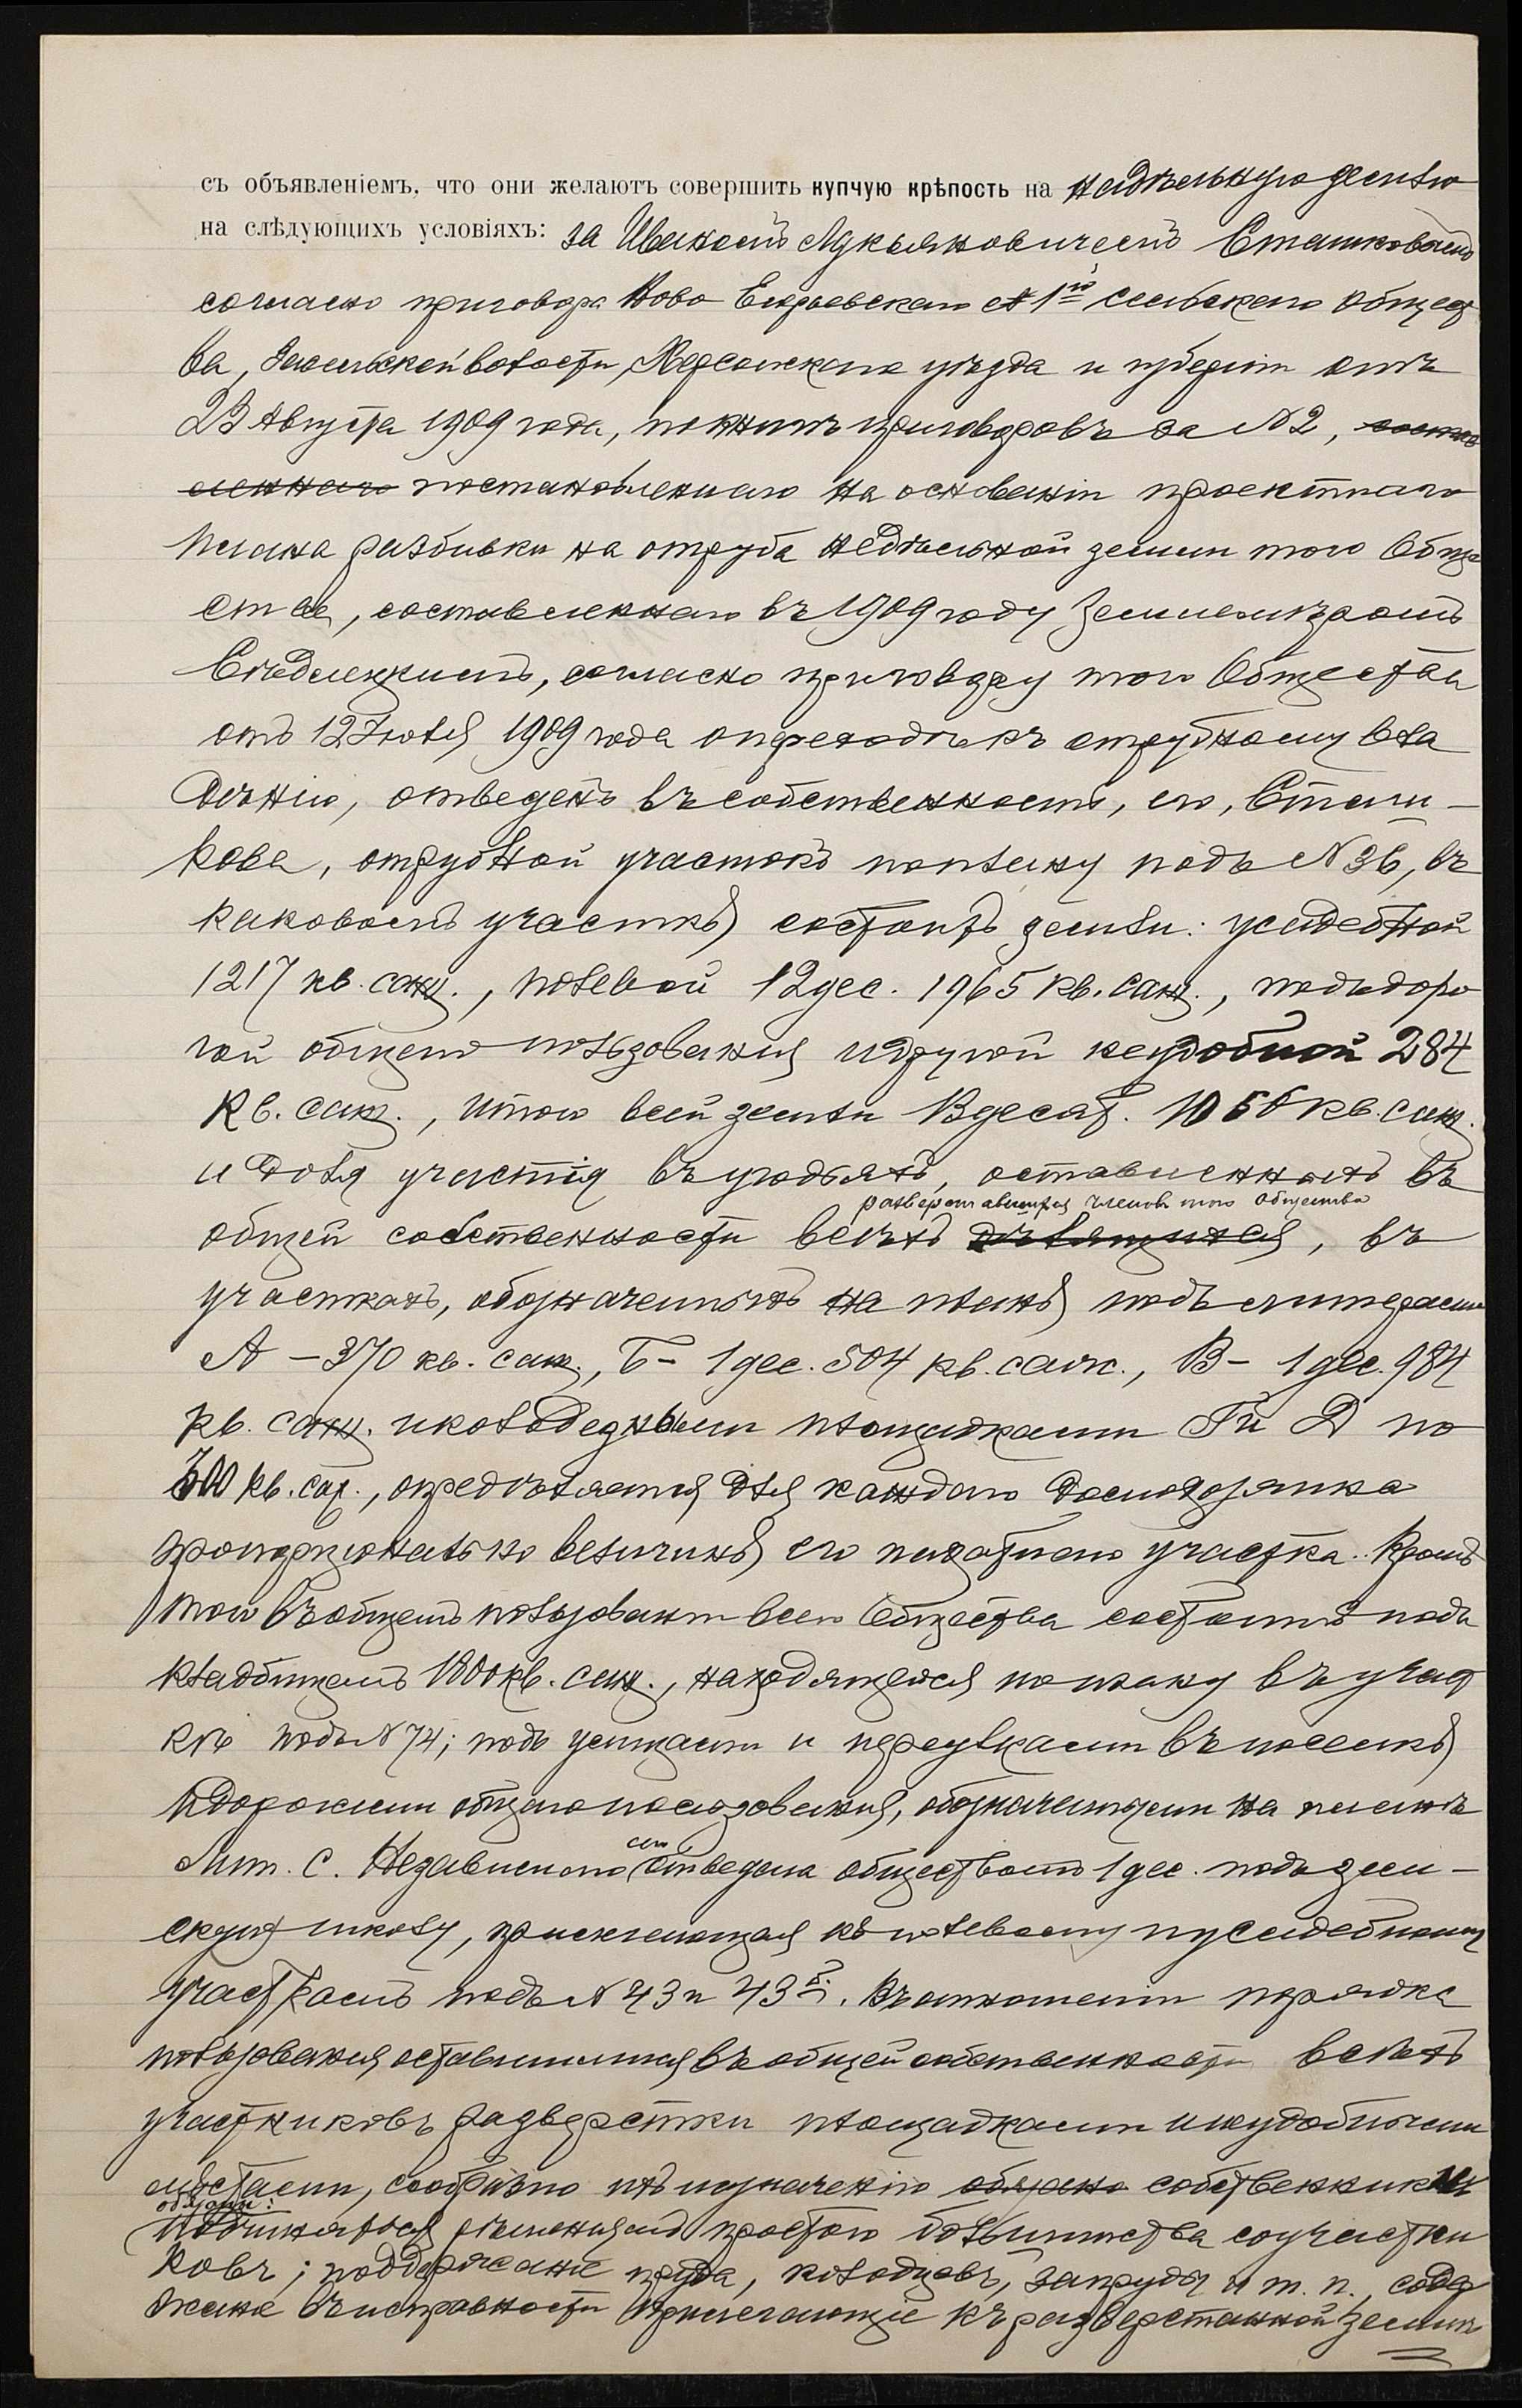 съ объявленіемъ, что они желаютъ совершить купчую крѣпость на надѣльную землю
на слѣдующихъ условіяхъ: за Иваномъ Лукьяновичемъ Сташковымъ
согласно приговора Ново Егорьевскаго № 1го сельскаго общест
ва, волости, Херсонскаго уѣзда и губерніи отъ
23 Августа 1909 года, по книгѣ приговоровъ за № 2, состав
леннаго постановленнаго на основаніи проектнаго
плана разбивки на отруба надѣльной земли того Обще
ства, составленнаго въ 1909 году Землемѣромъ
согласно приговору того Общества
отъ 12 Іюля 1909 года о переходѣ къ отрубному вла
дѣнію, отведенъ въ собственность, его, Сташ-
кова, отрубной участокъ по плану подъ № 36, въ
каковомъ участкѣ состоитъ земли: усадебной
1217 кв. саж., полевой 12 дес. 1965 кв. саж., подъ доро
гой общаго пользованія и другой неудобной 284
кв. саж., итого всей земли 13 десят. 1066 кв. саж.
и доля участія въ угодьяхъ, оставленныхъ въ
разверставшихся членовъ того Общества
общей собственности всѣхъ дѣлящихся, въ
участкахъ, обозначенныхъ на планѣ подъ литерами
А – 370 кв. саж., Б – 1 дес. 504 кв. саж., В – 1 дес. 984
кв. саж. и колодезными площадками Г и Д по
300 кв. саж., опредѣляется для каждаго домохозяина
пропорціонально величинѣ его участка. Кромѣ
того въ общемъ пользованіи всего Общества состоитъ подъ
кладбищемъ 1800 кв. саж., находящемся по плану въ участ
кѣ подъ № 74; подъ улицами и переулками въ поселкѣ
и дорогами общаго пользованія, обозначенными на планѣ
Лит. С. Независимо сего отведена обществомъ 1 дес. подъ зем-
скую школу, прилегающая къ полевому и усадебному
участкамъ подъ № 43 и 43 Б. Въ отношеніи порядка
пользованія оставшимися въ общей собственности всѣхъ
участниковъ разверстки площадками и неудобными
мѣстами, сообразно ихъ назначенію обязано собственники
обязаны:
подчиняться рѣшеніямъ простого большинства соучастни
ковъ; поддержаніе пруда, колодцевъ, запруды и т. п., содер
жаніе въ исправности прилегающіе къ разверстанной земли